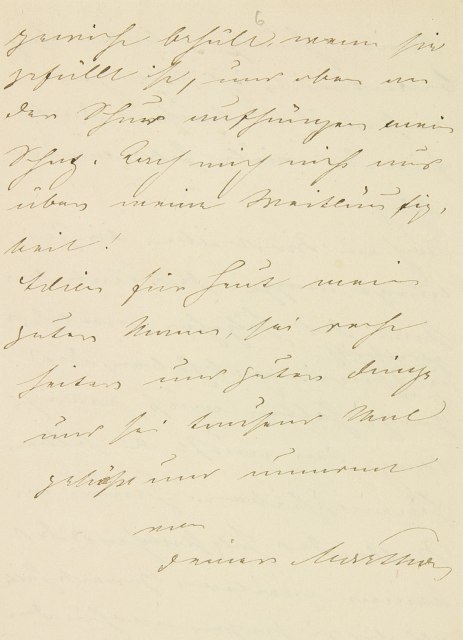 6
behält, wenn sie
gefüllt ist, und oben an
der Schnur aufhängen mein
Schatz. Lach mich nicht aus
über meine Weitläufig-
keit!
Adieu für heut mein
guter Mann, sei recht
heiter und guter Dinge
und sei tausend Mal
geküßt und umarmt
von
Deiner Martha